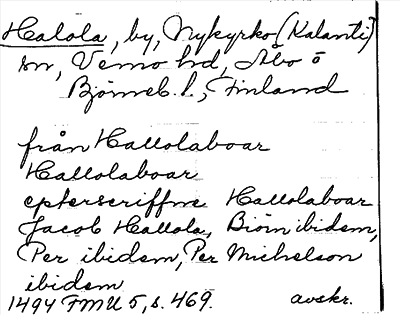 Halola, by, Nykyrko (Kalanti)
sn, Vemo hd, Åbo o
Björneb. l., Finland
från Hallolaboar
Hallolaboar
epterscriffne Hallolaboar
Jacob Hallola, Biörn ibidem,
Per ibidem, Per Michelson
ibidem
1494 FMU 5, s. 469. avskr.